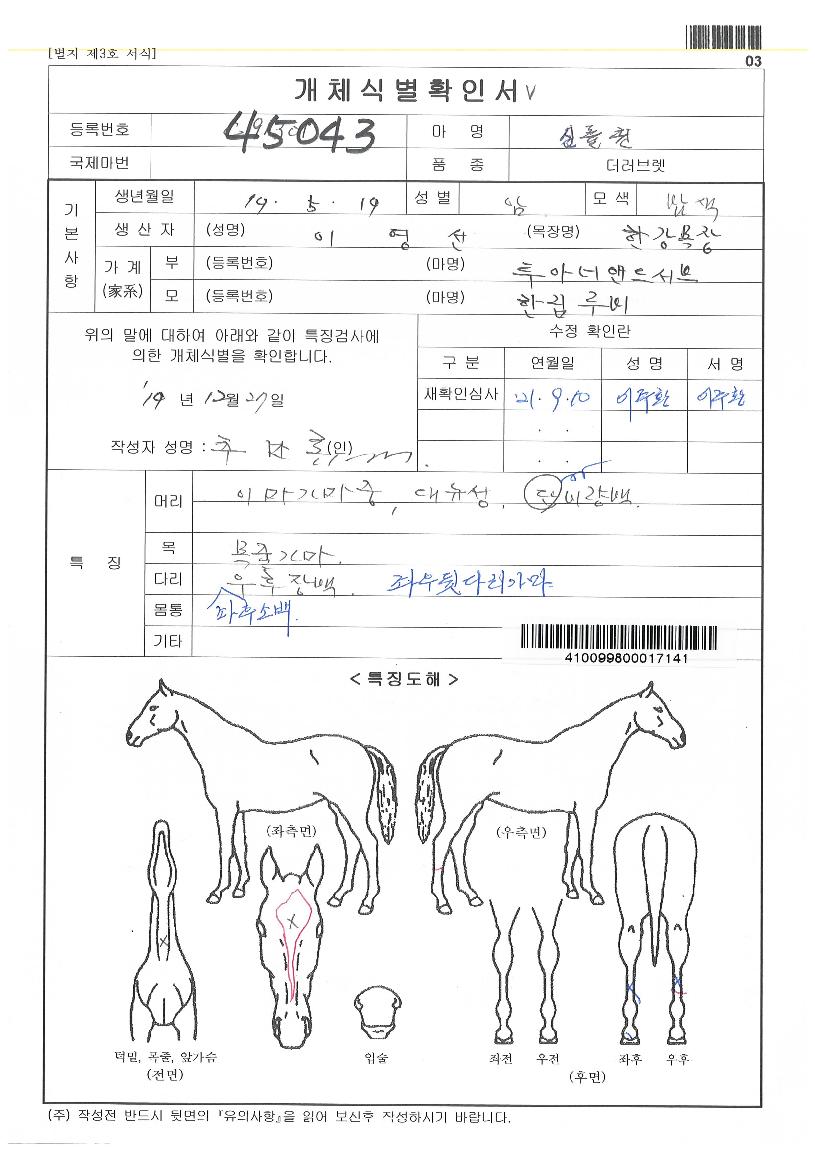 [별지 제3호 서식]
03
개체식별확인서 V
등록번호 45043 마 명 신틀퀸
국제마번 품 종 더러브렛
기본사항
생년월일 19. 5. 19 성별 암 모색 밤색
생 산 자 (성명) 이 영 산 (목장명) 한강목장
가 계 (家系) 부 (등록번호) (마명) 투아너앤드서브
모 (등록번호) (마명) 한림루비
위의 말에 대하여 아래와 같이 특징검사에
의한 개체식별을 확인합니다.
'19 년 12월 27일
작성자 성명 : (인)
수정 확인란
구 분 연월일 성 명 서 명
새확인심사 '21. 9. 10 이주환 이주환
. .
. .
특 징
머리 이마가마중, 대유성, 비량백.
목 목중가마.
다리 우후장백. 좌우뒷다리가마
몸통 좌후소백.
기타
410099800017141
< 특징도해 >
(좌측면) (우측면)
턱밑, 목줄, 앞가슴
(전면)
입술
좌전 우전
좌후 우후
(후면)
(주) 작성전 반드시 뒷면의 『유의사항』을 읽어 보신후 작성하시기 바랍니다.